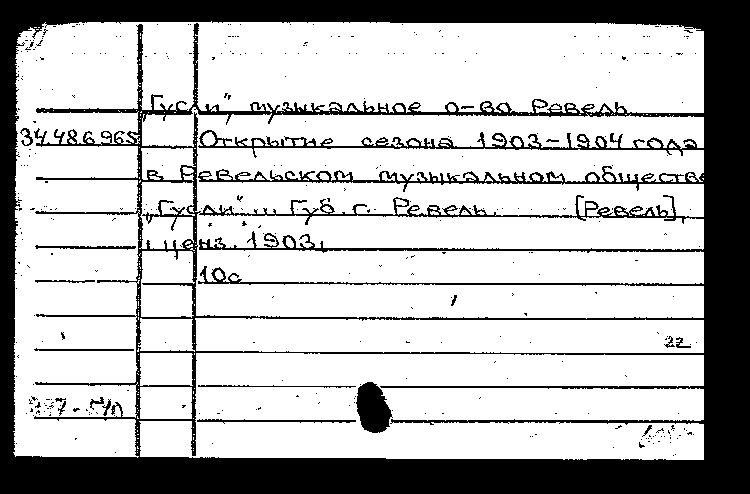 „Гусли", музыкальное о-во Ревель
34.48.6.965 Открытие сезона 1903-1904 года
в Ревельском музыкальном обществе
„Гусли"... Губ. г. Ревель. [Ревель],
ценз. 1903,
10с
22